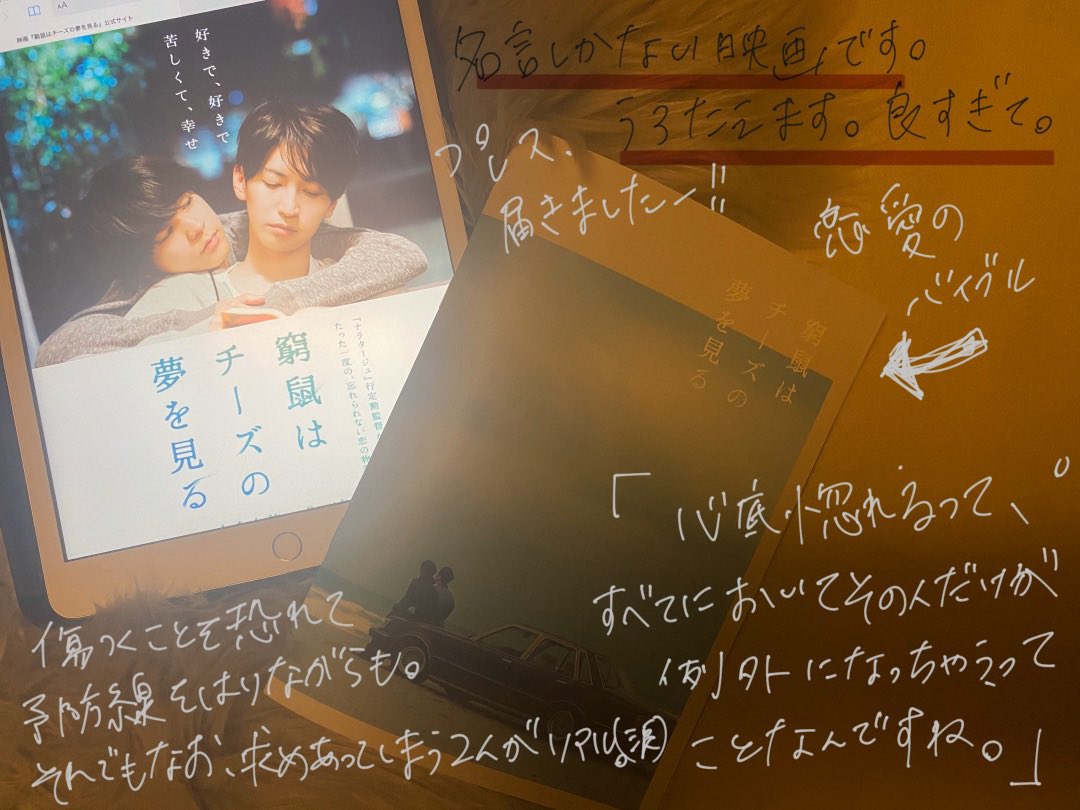 AA
映画『窮鼠はチーズの夢を見る』公式サイト
好きで、好きで
苦しくて、幸せ
『ナラタージュ』行定勲監督
たった一度の、忘れられない恋の物
窮鼠は
チーズの
夢を見る
名言しかない映画です。
うろたえます。良すぎて。
プレス、
届きましたー!!
恋愛の
バイブル
窮鼠は
チーズの
夢を見る
「心底惚れるって、
すべてにおいてその人だけが
例外になっちゃうって
ことなんですね。」
傷つくことを恐れて
予防線をはりながらも。
それでもなお、求めあってしまう2人がリアル(涙)